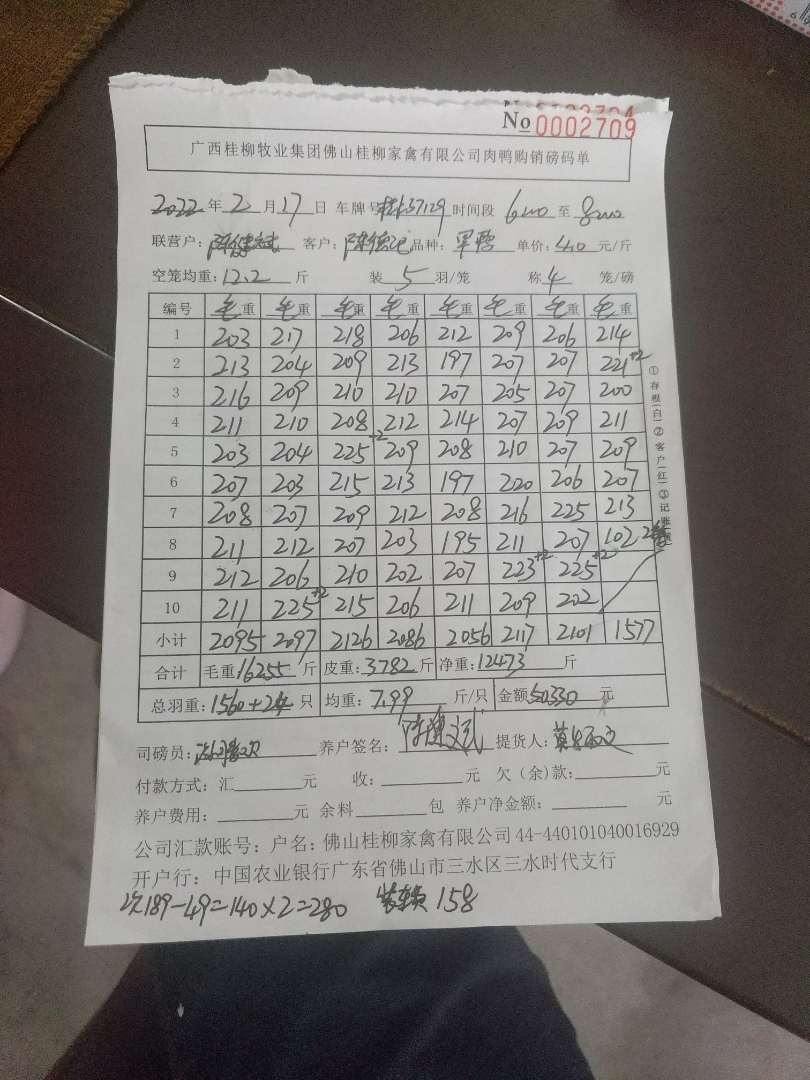 No 0002709
广西桂柳牧业集团佛山桂柳家禽有限公司肉鸭购销磅码单
2022年2月17日 车牌号 37129 时间段 6:00 至 8:00
联营户: 客户: 陈德记 品种: 单价: 4.0 元/斤
空笼均重: 12.2 斤 装 5 羽/笼 称 4 笼/磅
编号 毛重 毛重 毛重 毛重 毛重 毛重 毛重 毛重
1 203 217 218 206 212 209 206 214
2 213 204 209 213 197 207 207 221+2
3 216 209 210 210 207 205 207 200
4 211 210 208 212 214 207 209 211
5 203 204 225+2 209 208 210 207 209
6 207 203 215 213 197 220 206 207
7 208 207 209 212 208 216 225 213
8 211 212 207 203 195 211 207 102
9 212 206 210 202 207 223+2 225+2
10 211 225+2 215 206 211 209 202
小计 2095 2097 2126 2086 2056 2117 2101 1577
合计 毛重: 16255 斤 皮重: 3782 斤 净重: 12473 斤
总羽重: 1560+ 只 均重: 7.99 斤/只 金额: 50330 元
①存根(白)②客户(红)③记账
司磅员: 养户签名: 提货人:
付款方式: 汇 元 收: 元 欠(余)款: 元
养户费用: 元 余料 包 养户净金额: 元
公司汇款账号: 户名: 佛山桂柳家禽有限公司 44-440101040016929
开户行: 中国农业银行广东省佛山市三水区三水时代支行
次189-49=140×2=280 装车费 158